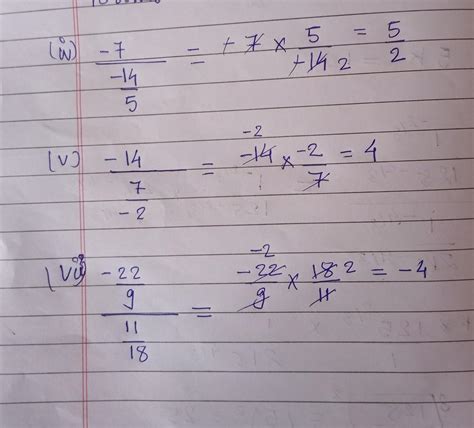 (iv) -7 / (-14/5) = -7 × 5/-14 2 = 5/2
(v) -14 / (7/-2) = -14 -2 × -2/7 = 4
(vii) (-22/9) / (11/18) = -22 -2/9 × 18 2/11 = -4